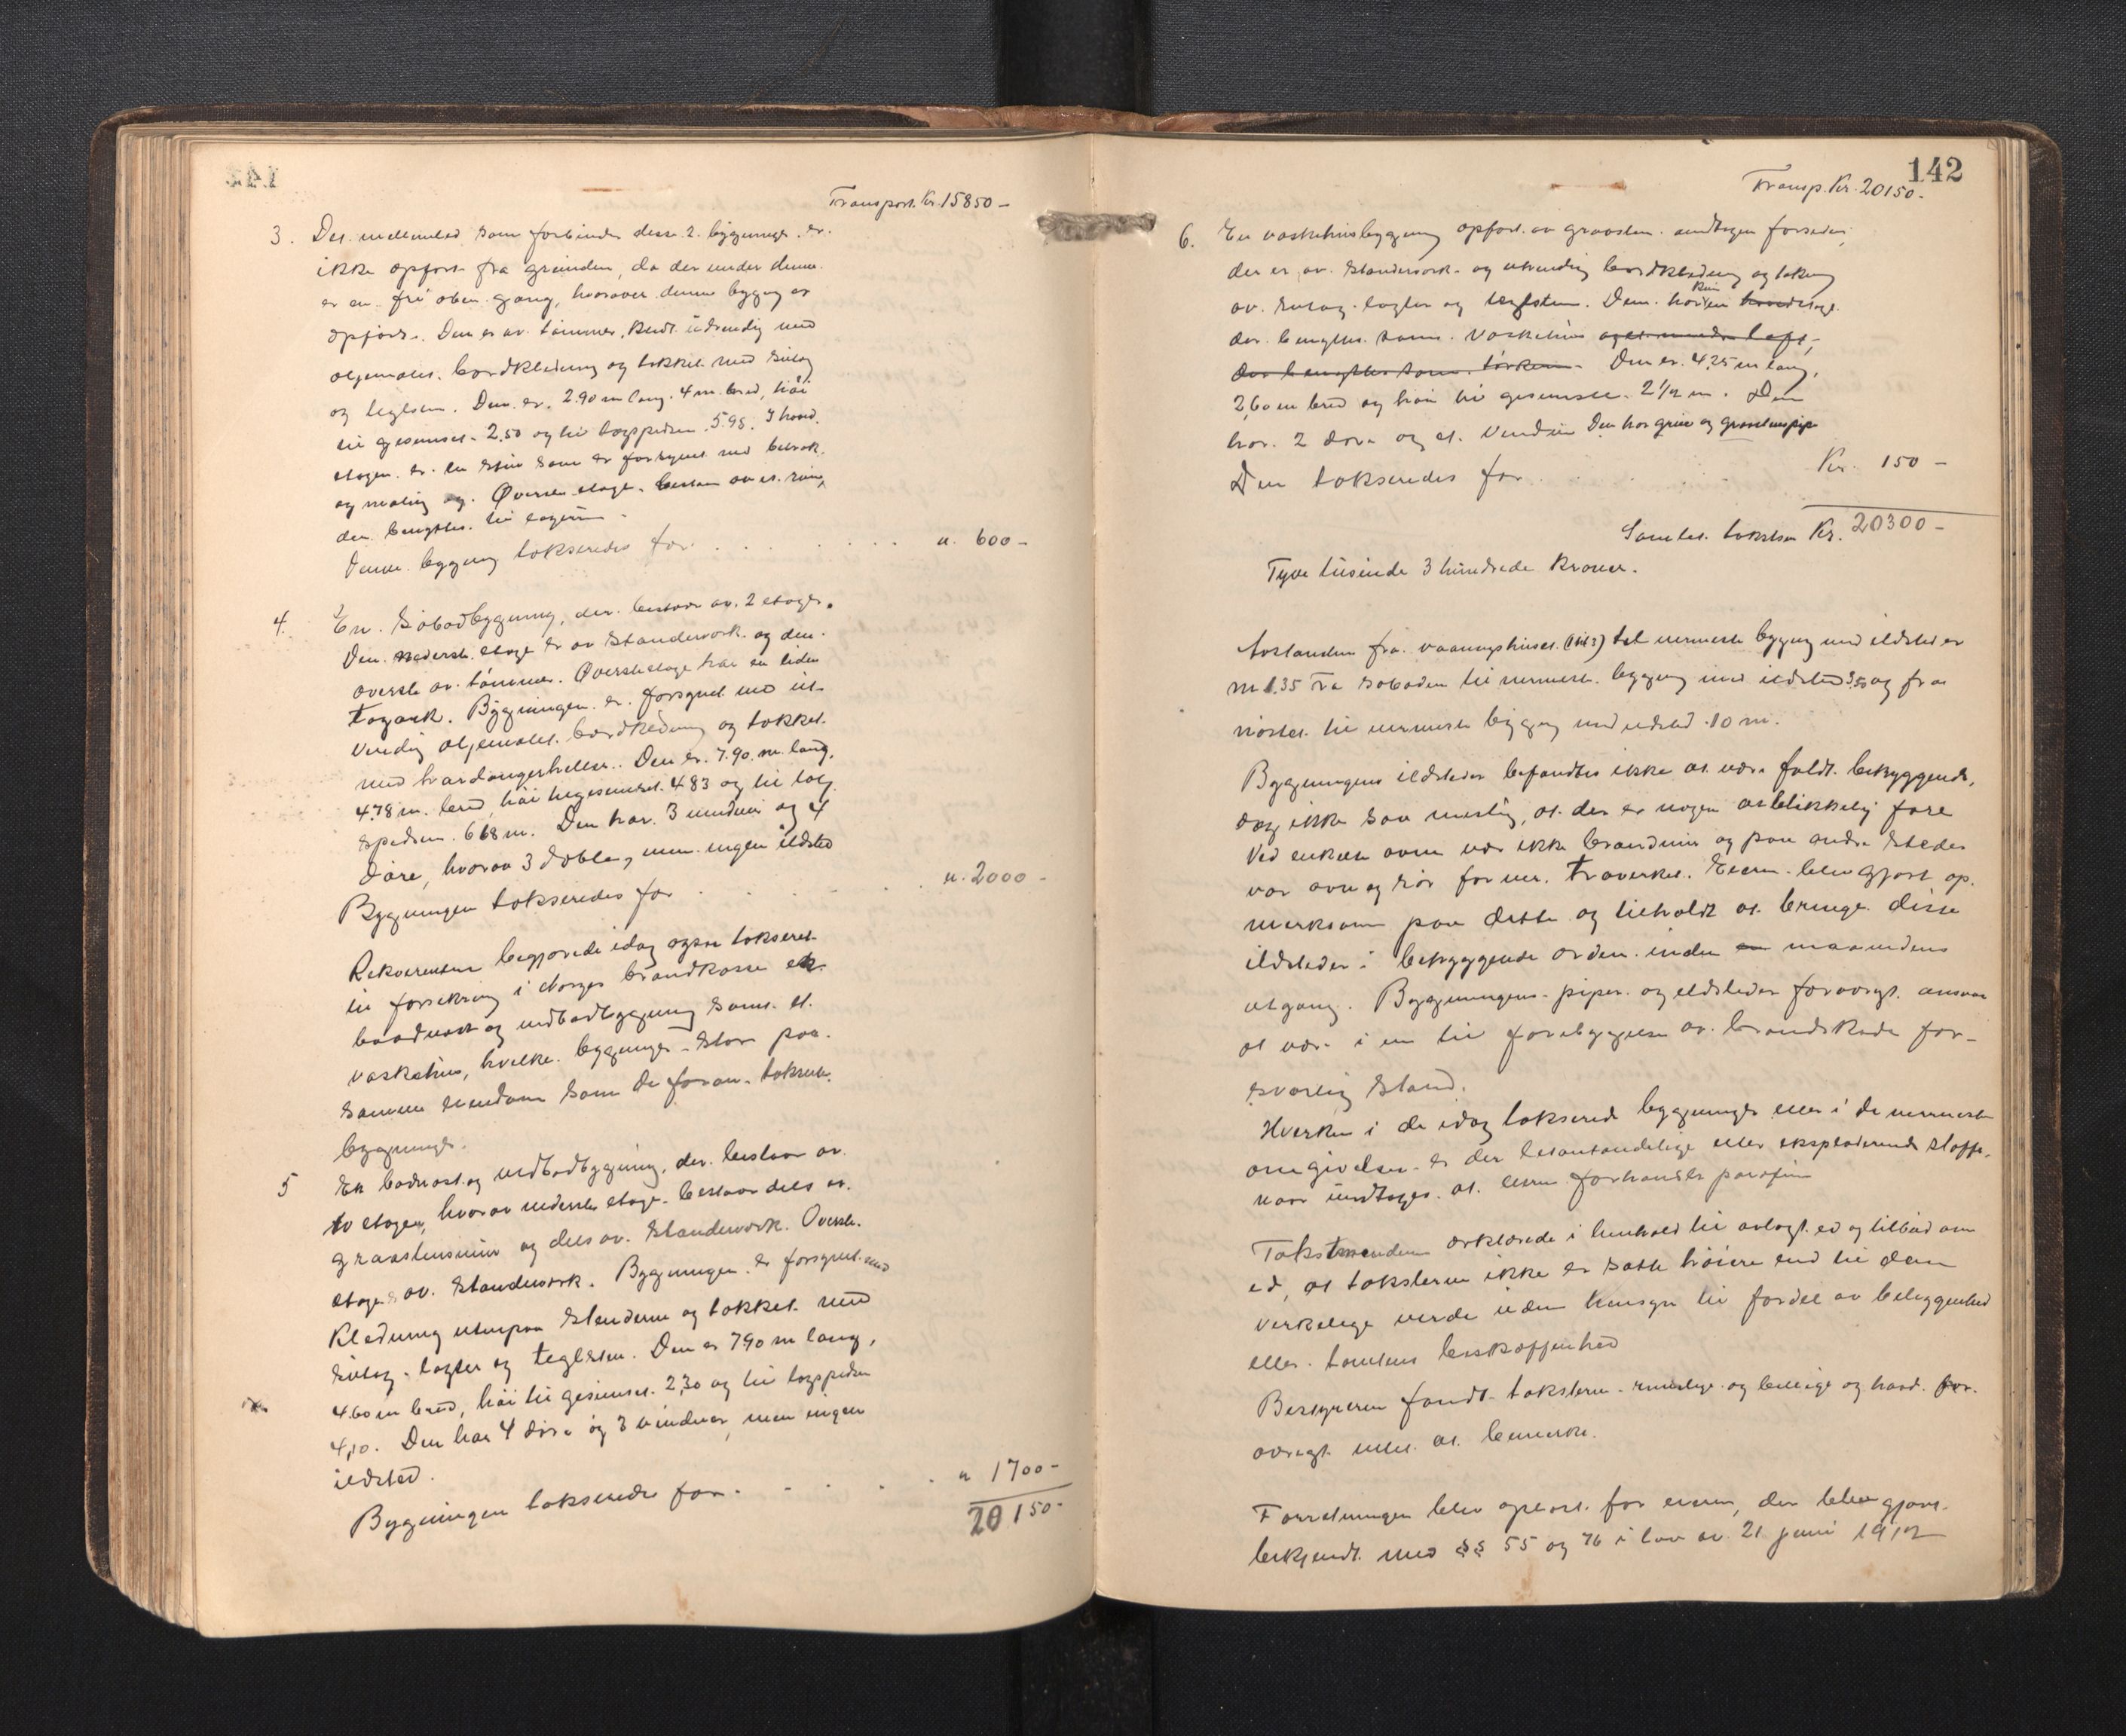 Transport. Kr. 15850 –
3. Det mellemled som forbinder disse 2 bygninger er
ikke opført fra grunden, da der under denne
er en fri oben gang, hvorover denne bygng er
opført. Den er av tømmer, kledt utvendig med
oljemalet bordkledning og tekket med sutag
og teglsten. Den er 2.90 m lang. 4 m. bred, høi
til gesimset 2,50 og til tagspidsen 5.95. I hoved
etagen er en stue som er forsynet med betræk
og maling og. Øverste etage bestaar av et rum,
der benyttes til lagerrum
Denne bygning takseredes for . . . . . . . " 600 –
4. En Søbodbygning, der bestaar av 2 etager.
Den nederste etage er av Standerverk og den
øverste av tømmer. Øverste etage har en liden
tagark. Bygningen er forsynet med ut-
vendig oljemalet bordkledning og tækket
med hardangerheller. Den er 7.90 m. lang,
4.78 m. bred, høi til gesimset 4.83 og til tag
spidsen 6.68 m. Den har 3 vinduer og 4
døre, hvorav 3 doble, men ingen ildsted
Bygningen takseredes for . . . . . " 2000 –
Rekvirenten begjærede idag ogsaa takseret
til forsikring i Norges brandkasse et
baadnøst og vedbodbygning samt et
vaskehus, hvilke bygninger staar paa
samme eiendom som de foran takserte
bygninger.
5 En badnøst og vedbodbygning, der bestaar av
to etager, hvorav nederste etage bestaar dels av
graastensmur og dels av Standerverk. Øverste
etage av Standerverk. Bygningen er forsynet med
kledning utenpaa stenderne og tækket med
sutag, lægter og teglsten. Den er 7.90 m lang,
4.60 m bred, høi til gesimset 2,30 og til tagspidsen
4,10. Den har 4 døre og 3 vinduer, men ingen
ildsted.
Bygningen takseredes for . . . . . " 1700 –
20150 –
142
Transp. Kr. 20150 –
6. En vaskehusbygning opført av graasten undtagen forsiden,
der er av Standerverk og utvendig bordkledning og tekning
av sutag lægter og teglsten. Den har kun en hovedetage
der benyttes som vaskehus og et mindre loft,
der benyttes som tørkerum. Den er 4.25 m lang,
2,60 m bred og høi til gesimset 2 1/2 m. Den
har 2 døre og et vindu Den har grue og graastenspipe
Den takseredes for . . . . Kr. 150 –
Samlet takstsum Kr. 20300 –
Tyve tusinde 3 hundrede Kroner.
Avstanden fra vaaningshuset (nr 3) til nermeste bygng med ildsted er
m 1.35 Fra søboden til nermeste bygng med ildsted 3,50 og fra
nøstet til nermeste bygng med ildsted 10 m.
Bygningens ildsteder befandtes ikke at være fuldt betryggende,
dog ikke saa usselig, at der er nogen øieblikkelig fare
Ved enkelte ovne var ikke brandmur og paa andre steder
var ovn og rør for nær træverket. Eieren blev gjort op-
merksom paa dette og tilholdt at bringe disse
ildsteder i betryggende orden inden en maaneds
utgang. Bygningens piper og ildsteder forøvrigt ansaaes
at være i en til forebyggelse av brandskade for-
svarlig stand.
Hverken i de idag takserede bygninger eller i de nermeste
omgivelser er der letantændelige eller eksploderende stoffe,
naar undtages at eieren forhandler parafin
Takstmændene erklærede i henhold til avlagt ed og tilbud om
ed, at taksterne ikke er satte høiere end til den
virkelige verdi uten hensyn til fordel av beliggenhed
eller tomtens beskaffenhed
Bestyreren fandt taksterne rimelige og billige og havde for-
øvrigt intet at bemerke.
Forretningen blev oplæst for eieren, der blev gjort
bekjendt med §§ 55 og 76 i lov av 21 juni 1912